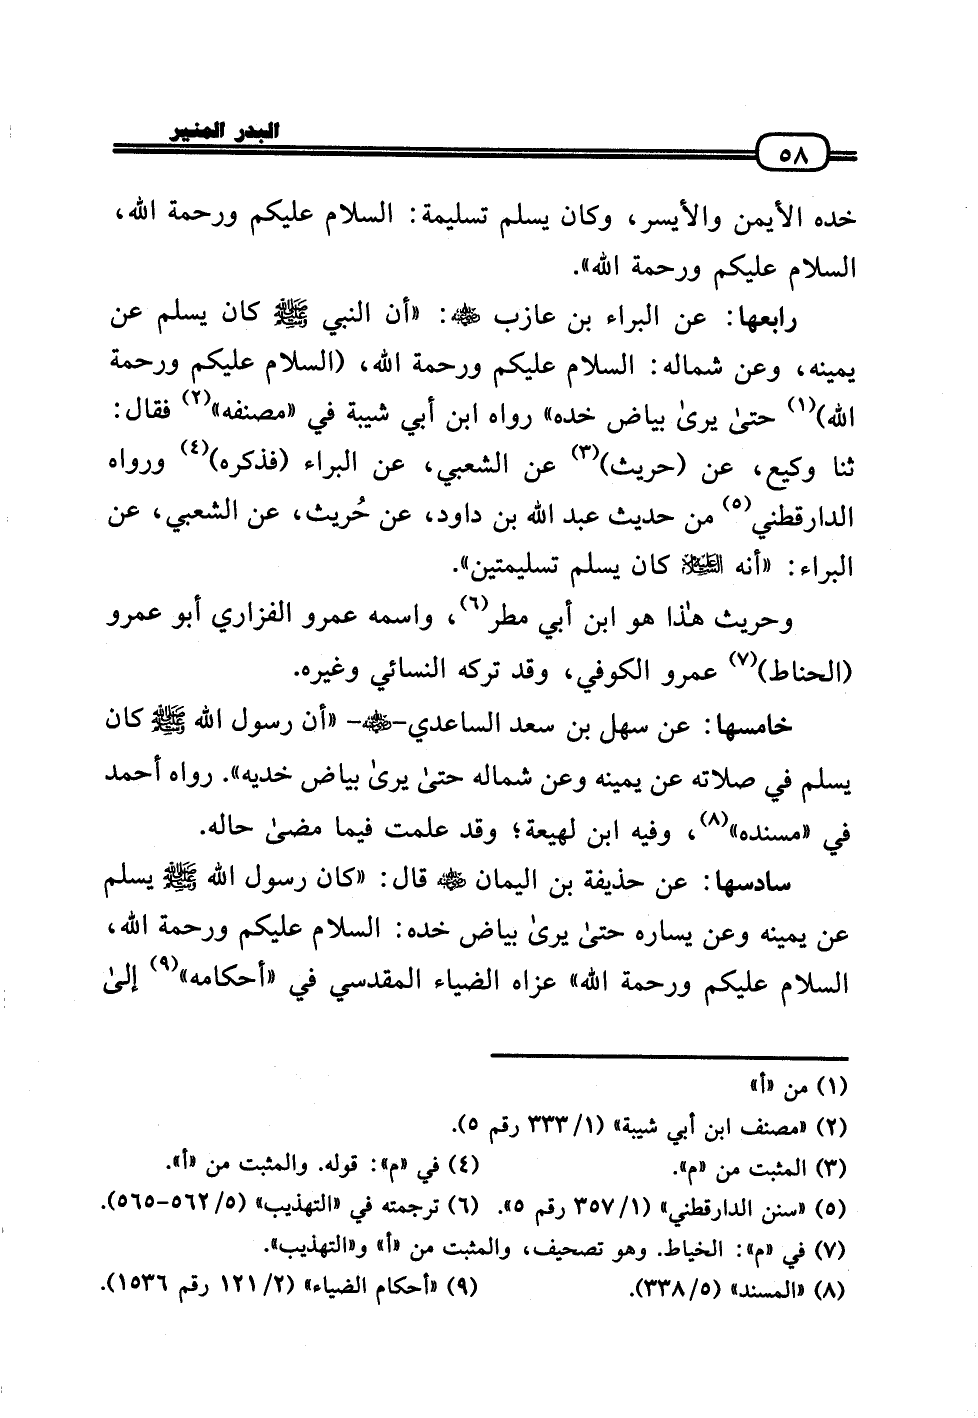 البدر المنير
٥٨
خده الأيمن والأيسر، وكان يسلم تسليمة: السلام عليكم ورحمة الله،
السلام عليكم ورحمة الله».
رابعها: عن البراء بن عازب رضي الله عنه: «أن النبي ﷺ كان يسلم عن
يمينه، وعن شماله: السلام عليكم ورحمة الله، (السلام عليكم ورحمة
الله)(١) حتىٰ يرىٰ بياض خده» رواه ابن أبي شيبة في «مصنفه»(٢) فقال:
ثنا وكيع، عن (حريث)(٣) عن الشعبي، عن البراء (فذكره)(٤) ورواه
الدارقطني(٥) من حديث عبد الله بن داود، عن حُريث، عن الشعبي، عن
البراء: «أنه عليه السلام كان يسلم تسليمتين».
وحريث هٰذا هو ابن أبي مطر(٦)، واسمه عمرو الفزاري أبو عمرو
(الحناط)(٧) عمرو الكوفي، وقد تركه النسائي وغيره.
خامسها: عن سهل بن سعد الساعدي-رضي الله عنه- «أن رسول الله ﷺ كان
يسلم في صلاته عن يمينه وعن شماله حتىٰ يرىٰ بياض خديه». رواه أحمد
في «مسنده»(٨)، وفيه ابن لهيعة؛ وقد علمت فيما مضىٰ حاله.
سادسها: عن حذيفة بن اليمان رضي الله عنه قال: «كان رسول الله ﷺ يسلم
عن يمينه وعن يساره حتىٰ يرىٰ بياض خده: السلام عليكم ورحمة الله،
السلام عليكم ورحمة الله» عزاه الضياء المقدسي في «أحكامه»(٩) إلىٰ
(١) من «أ»
(٢) «مصنف ابن أبي شيبة» (١/ ٣٣٣ رقم ٥).
(٣) المثبت من «م». (٤) في «م»: قوله. والمثبت من «أ».
(٥) «سنن الدارقطني» (١/ ٣٥٧ رقم ٥). (٦) ترجمته في «التهذيب» (٥/ ٥٦٢-٥٦٥).
(٧) في «م»: الخياط. وهو تصحيف، والمثبت من «أ» و«التهذيب».
(٨) «المسند» (٥/ ٣٣٨). (٩) «أحكام الضياء» (٢/ ١٢١ رقم ١٥٣٦).